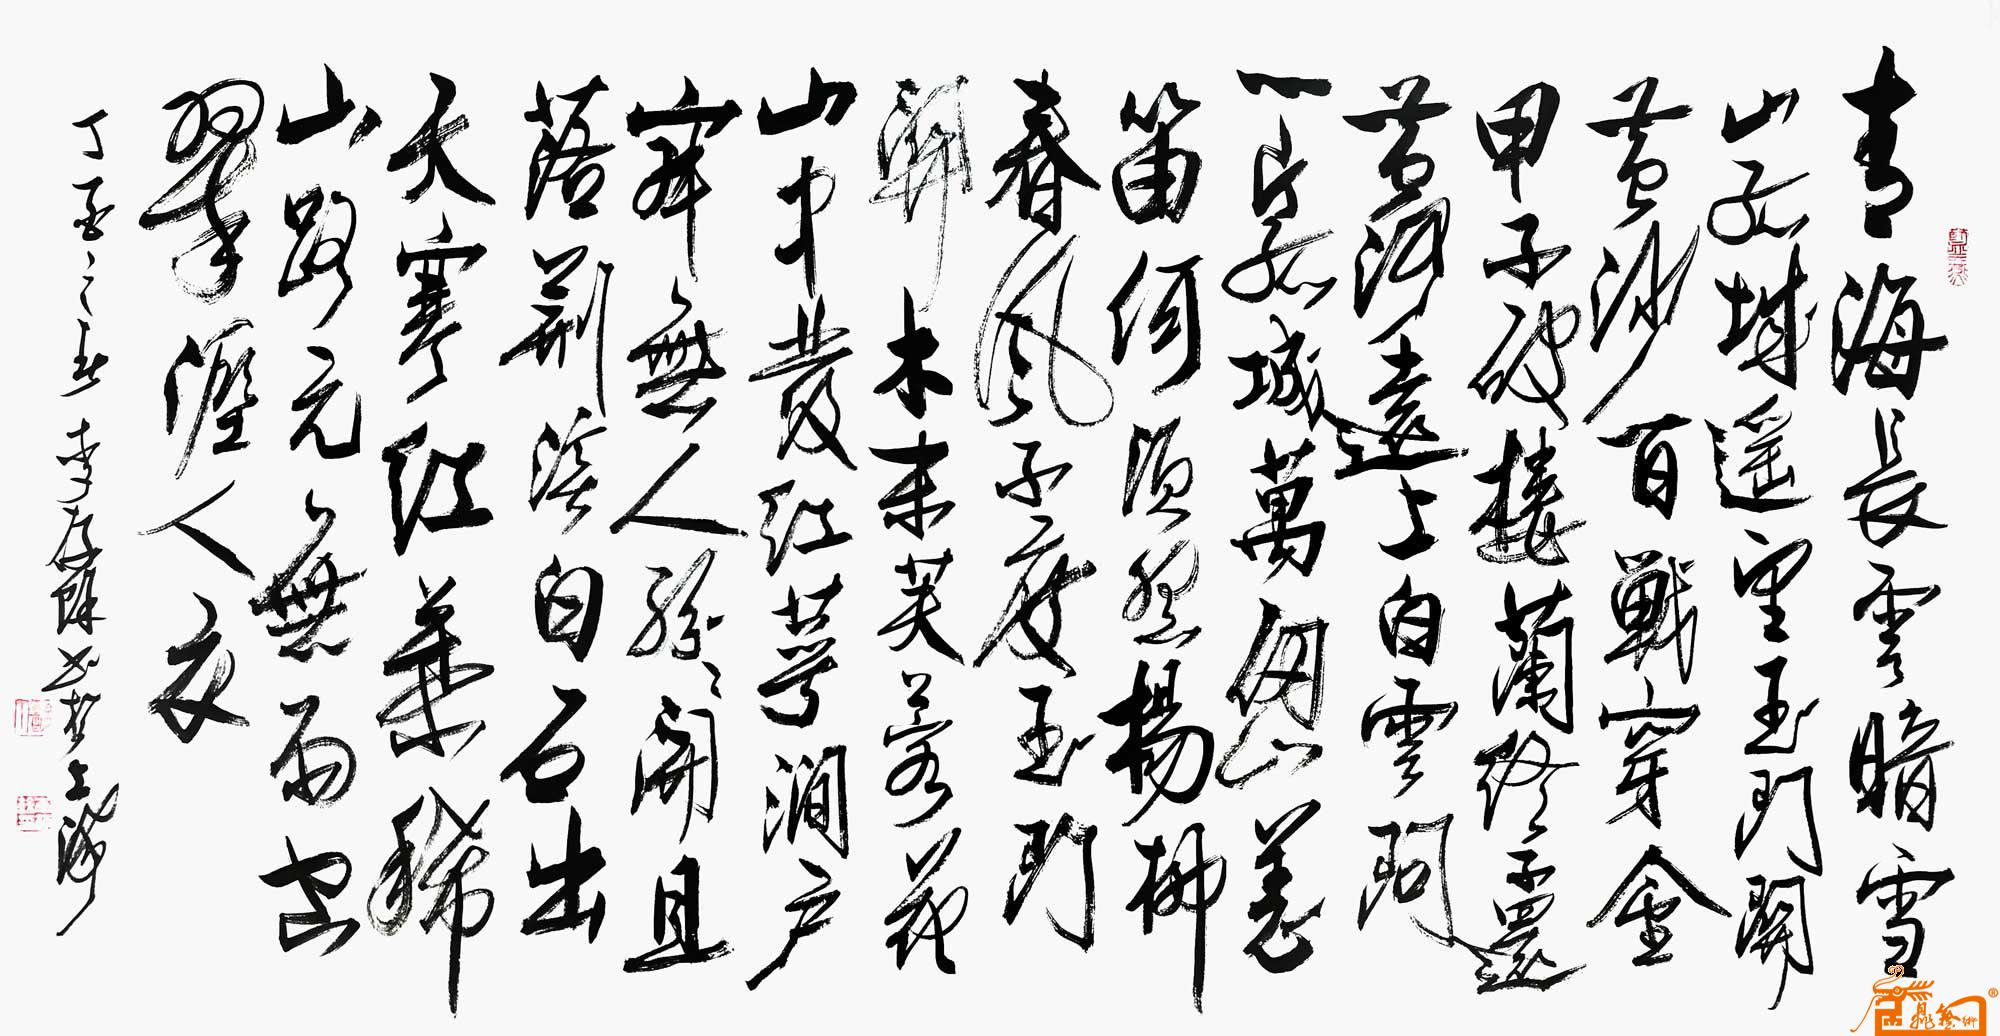 青海長雲暗雪
山孤城遥望玉門關
黄沙百戰穿金
甲不破樓蘭終不還
黄河遠上白雲間
一片孤城萬仞山羌
笛何須怨楊柳
春風不度玉門
關木末芙蓉花
山中發紅萼澗户
寂無人紛〻開且
落荆溪白石出
天寒紅葉稀
山路元無雨空
翠濕人衣
丁酉之春李存書於上海